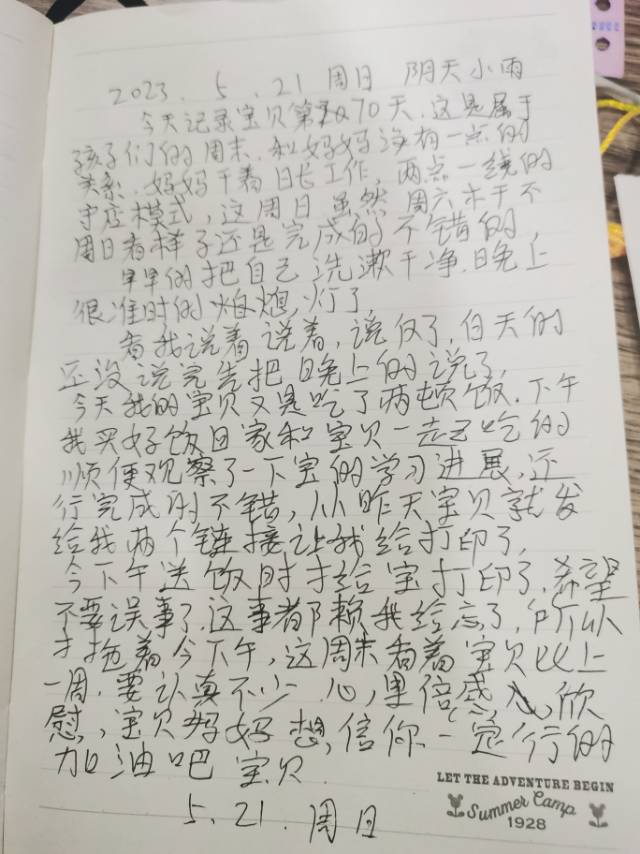 2023. 5. 21 周日 阴天小雨
今天记录宝贝第270天.这是属于
孩子们的周末.和妈妈没有一点的
关系.妈妈干着日长工作,两点一线的
守店模式,这周日虽然周六木干不
周日看样子还是完成的不错的,
早早的把自己洗漱干净.晚上
很准时的熄熄,灯了
看我说着说着,说反了,白天的
还没说完先把晚上的说了,
今天我的宝贝又是吃了两顿饭.下午
我买好饭回家和宝贝一起吃的
顺便观察了一下宝的学习进展,还
行完成的不错,从昨天宝贝就发
给我两个链接让我给打印了,
今下午送饭时才给宝打印了.希望
不要误事了.这事都赖我给忘了,所以
才拖着今下午,这周末看着宝贝比上
一周.要认真不少 心,里倍感,欣
慰,宝贝妈妈想,信你一定行的
加油吧 宝贝.
5. 21. 周日
LET THE ADVENTURE BEGIN
Summer Camp
1928